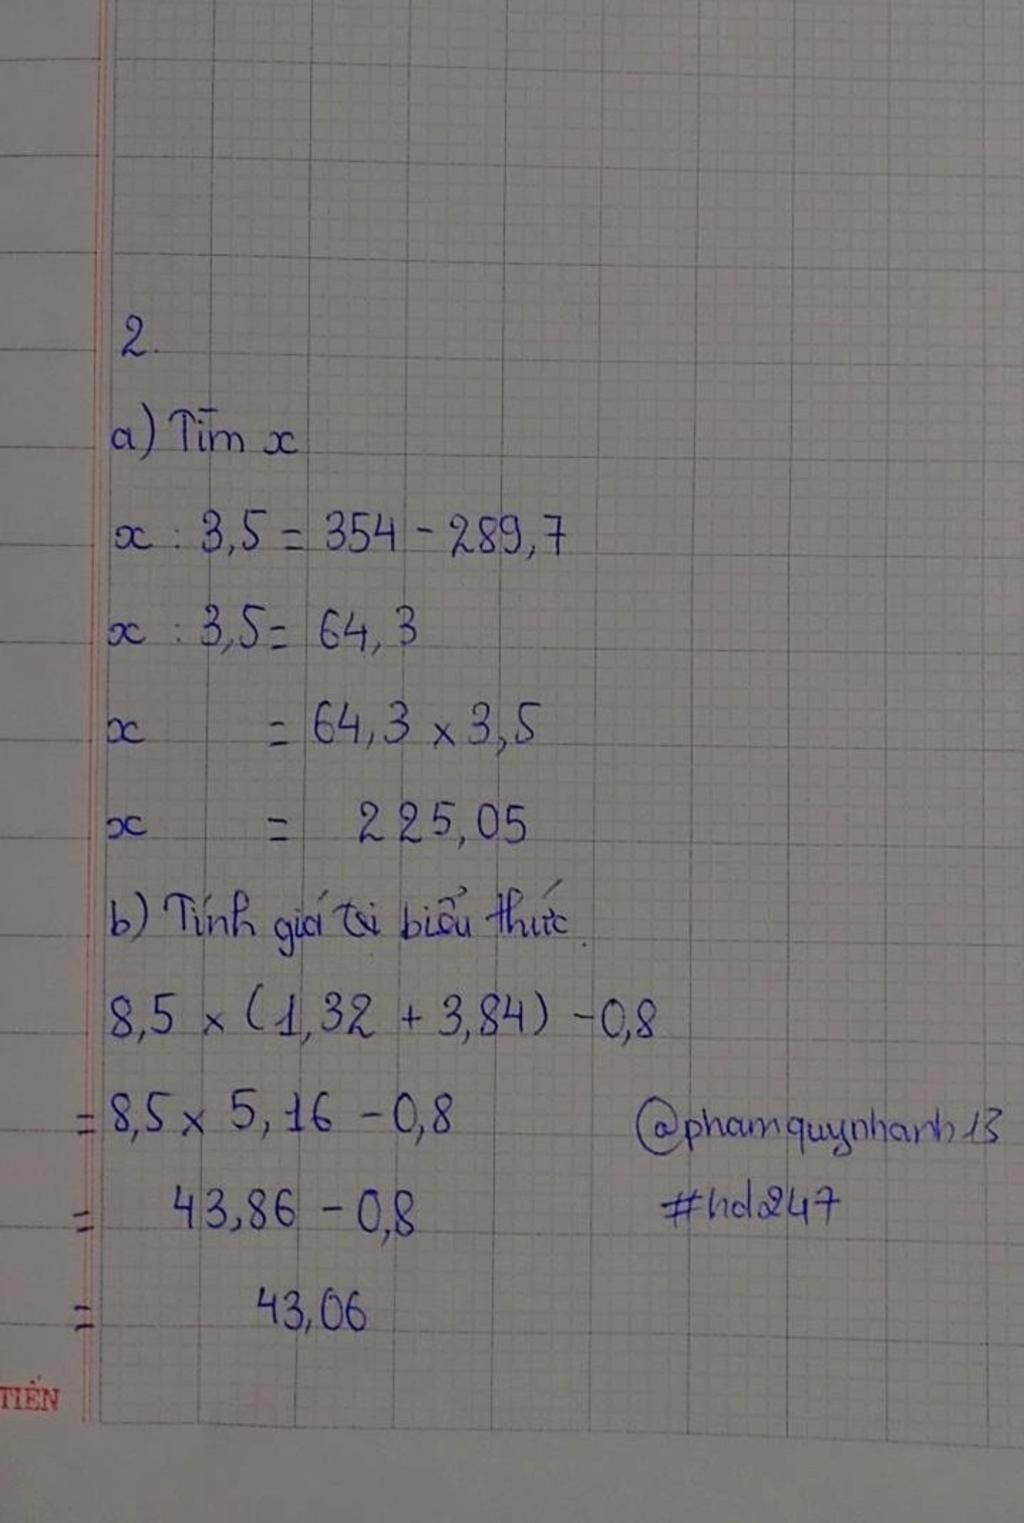 2.
a) Tìm x
x : 3,5 = 354 - 289,7
x : 3,5 = 64,3
x = 64,3 x 3,5
x = 225,05
b) Tính giá trị biểu thức.
8,5 x (1,32 + 3,84) - 0,8
= 8,5 x 5,16 - 0,8
= 43,86 - 0,8
= 43,06
@phamquynhanh13
#hd247
TIẾN